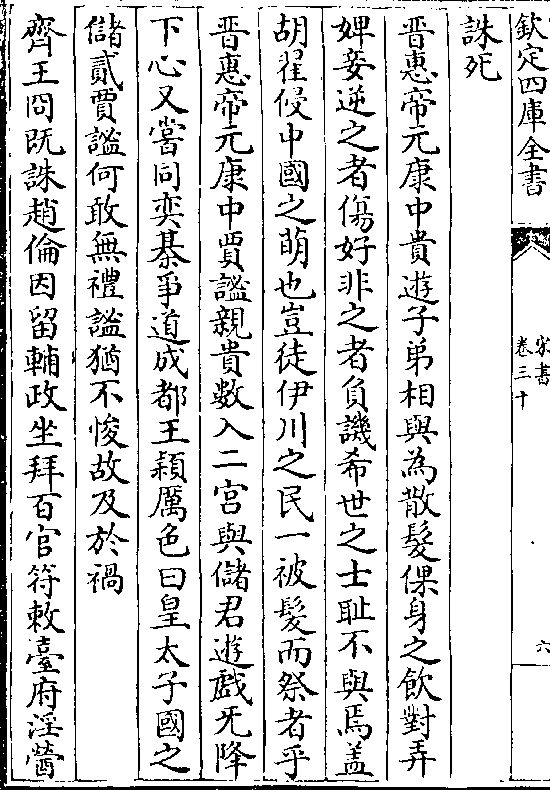 欽定四庫全書
宋書
卷三十
六
誅死
晋惠帝元康中貴遊子弟相與為散髮倮身之飲對弄
婢妾逆之者傷好非之者負譏希世之士恥不與焉盖
胡翟侵中國之萌也豈徒伊川之民一被髮而祭者乎
晋惠帝元康中賈謐親貴數入二宫與儲君遊戲无降
下心又嘗同奕棊爭道成都王穎厲色曰皇太子國之
儲貳賈謐何敢無禮謐猶不悛故及於禍
齊王冏既誅趙倫因留輔政坐拜百官符敕臺府淫䇿